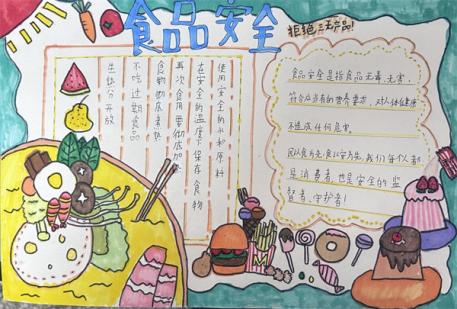 食品安全
拒绝三无产品!
使用安全的水和原料
在安全的温度下保存食物
再次食用要彻底加热
食物彻底煮熟
不吃过期食品
生熟分开放
食品安全是指食品无毒、无害,
符合应当有的营养要求,对人体健康
不造成任何危害。
民以食为先,食以安为先,我们每个人都
是消费者,也是安全的监
督者、守护者!
M